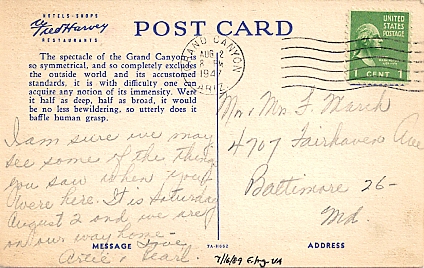 HOTELS · SHOPS
Fred Harvey
RESTAURANTS
POST CARD
The spectacle of the Grand Canyon is
so symmetrical, and so completely excludes
the outside world and its accustomed
standards, it is with difficulty one can
acquire any notion of its immensity. Were
it half as deep, half as broad, it would
be no less bewildering, so utterly does it
baffle human grasp.
GRAND CANYON
AUG 2
8 PM
1947
ARIZ.
UNITED
STATES
POSTAGE
1 CENT 1
I am sure we may
see some of the things
you saw when you
were here. It is Saturday
August 2 and we are
on our way home -
Love
Artie & Pearl.
Mr. Mrs F. March
4707 Fairhaven Ave
Baltimore 26-
Md.
MESSAGE
7A-H652
ADDRESS
7/6/89